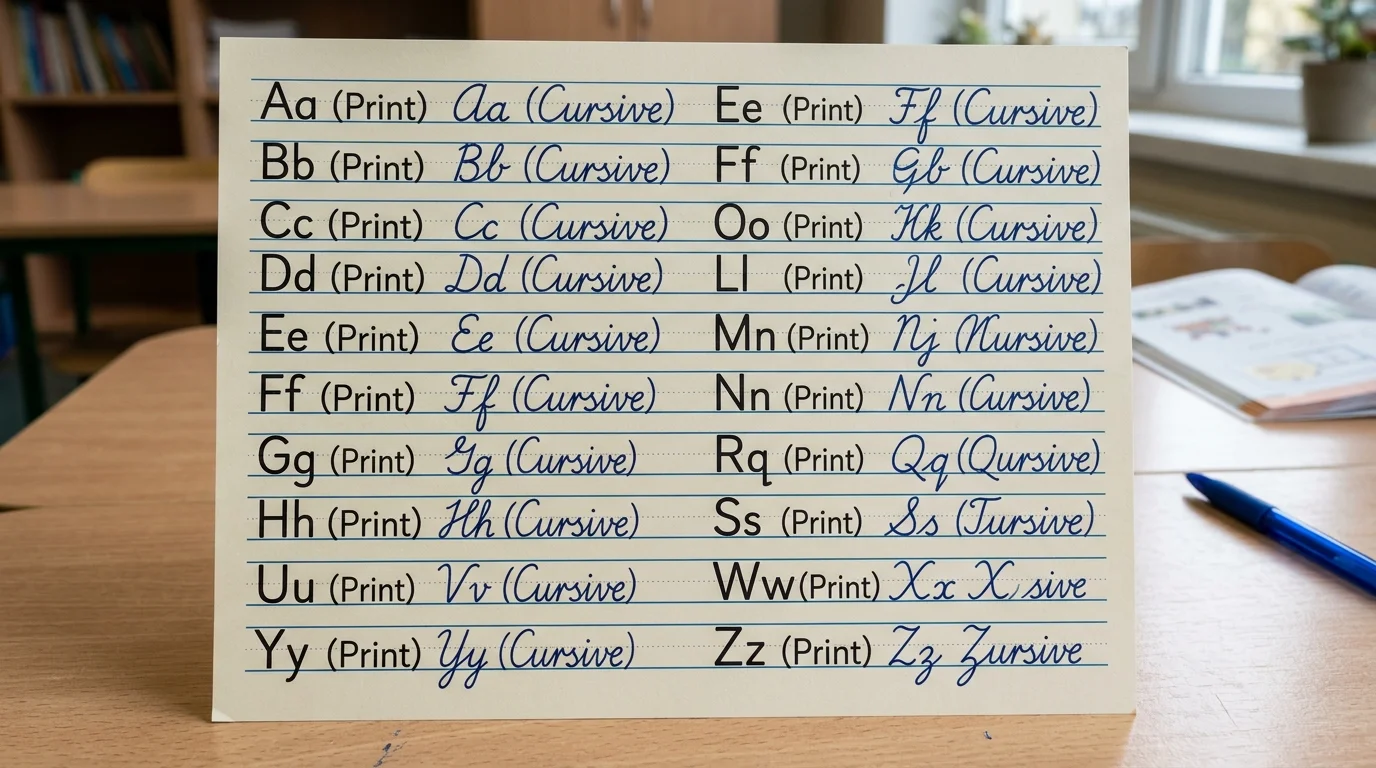 Aa (Print) Aa (Cursive)
Bb (Print) Bb (Cursive)
Cc (Print) Cc (Cursive)
Dd (Print) Dd (Cursive)
Ee (Print) Ee (Cursive)
Ff (Print) Ff (Cursive)
Gg (Print) Gg (Cursive)
Hh (Print) Hh (Cursive)
Uu (Print) Vv (Cursive)
Yy (Print) Yy (Cursive)
Ee (Print) Ff (Cursive)
Ff (Print) Gb (Cursive)
Oo (Print) Hk (Cursive)
Ll (Print) (Cursive)
Mn (Print) Nj (Nursive)
Nn (Print) Nn (Cursive)
Rq (Print) Qq (Qursive)
Ss (Print) Ss (Tursive)
Ww (Print) Xx X sive
Zz (Print) Zz Zursive